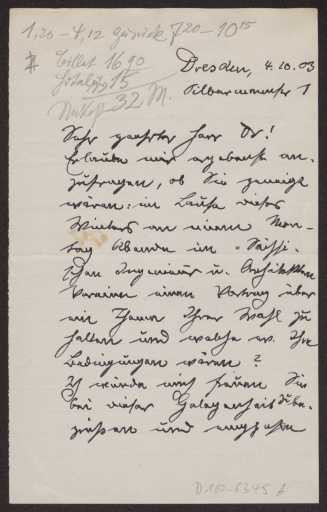 1,20 – 4,12 zurück 7 20 – 10 15
Billet 16 90
Hotel 15
32 M.
Dresden, 4.10.03
Silbermannstr 1
Sehr geehrter Herr Dr!
Erlaube mir ergebenst an-
zufragen, ob Sie geneigt
wären im Laufe dieses
Winters an einem Mon-
tag Abende im „Sächsi-
schen Ingenieur u. Architekten
Vereine einen Vortrag über
ein Thema Ihrer Wahl zu
halten und welche ev. Ihre
Bedingungen wären?
Ich würde mich freuen Sie
bei dieser Gelegenheit
und
D.160-6345